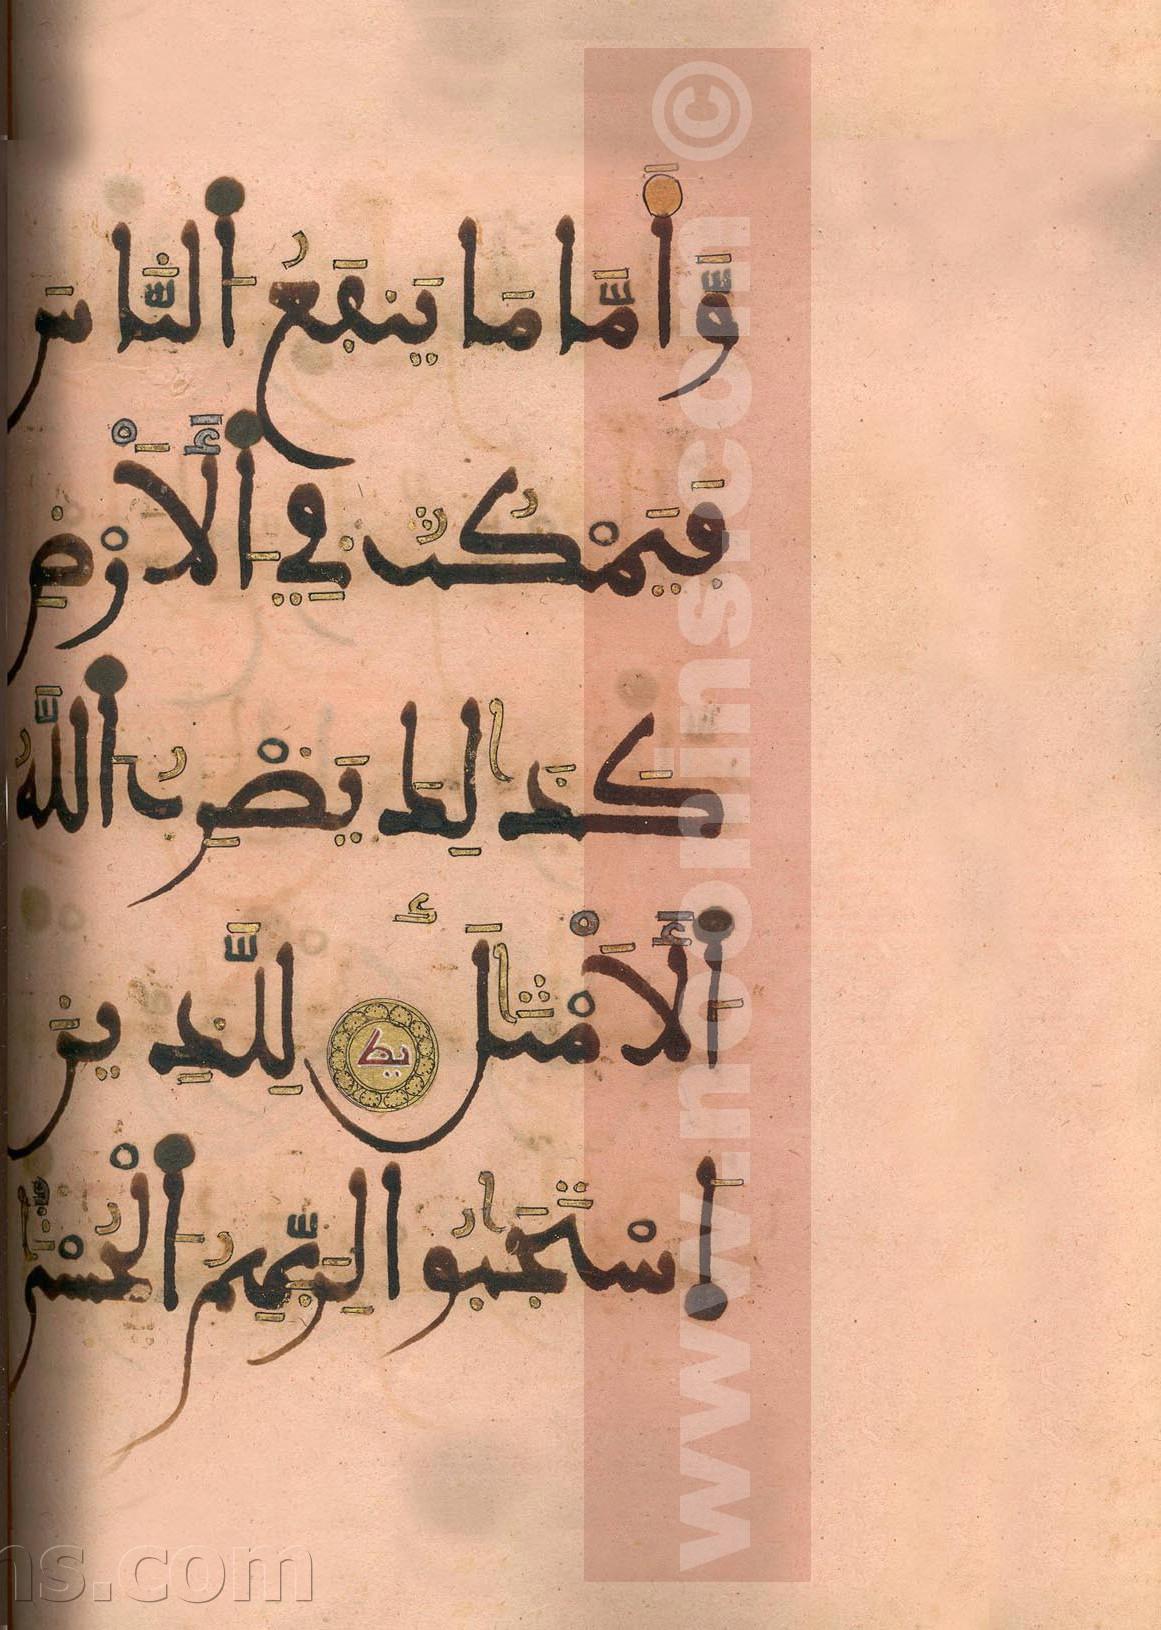 وَأَمَّا مَا يَنفَعُ اَلنَّاسَ
فَيَمْكُثُ فِي اِلَارْضِ
كَذَٰلِكَ يَضْرِبُ اُللَّهُ
اُلَامْثَٰلَ يط لِلَّذِينَ
اِسْتَجَابُوا لِرَبِّهِمُ اُلْحُسْنَىٰ
www.noonins.com ©
ns.com